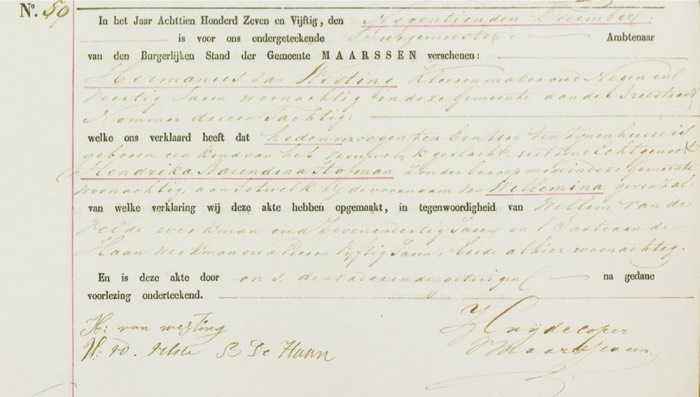 Nº. 59
In het Jaar Achttien Honderd Zeven en Vijftig, den Negentienden December
is voor ons ondergeteekende Burgemeester Ambtenaar
van den Burgerlijken Stand der Gemeente MAARSSEN verschenen:
Hermanus van Westing Kleermaker oud Negen en
Veertig Jaren woonachtig in deze Gemeente aan de
Nommer drie en Tachtig:
welke ons verklaard heeft dat heden morgen ten Een Ure ten zijnen huize is
geboren een kind van het Vrouwelijk geslacht uit zijne Echtgenoote
Hendrika Barendina Hofman zonder beroep mede in deze Gemeente
woonachtig, aan hetwelk hij de voornaam van Willemina geven zal.
van welke verklaring wij deze akte hebben opgemaakt, in tegenwoordigheid van Willem van de
Velde werkman oud Zevenendertig Jaren en Bastiaan de
Haan werkman oud Vijftig Jaren, beide alhier woonachtig.
En is deze akte door ons, den en de getuigen na gedane
voorlezing onderteekend.
H: van westing
W: vd. Velde B De Haan
Huydecoper
Maarsseveen